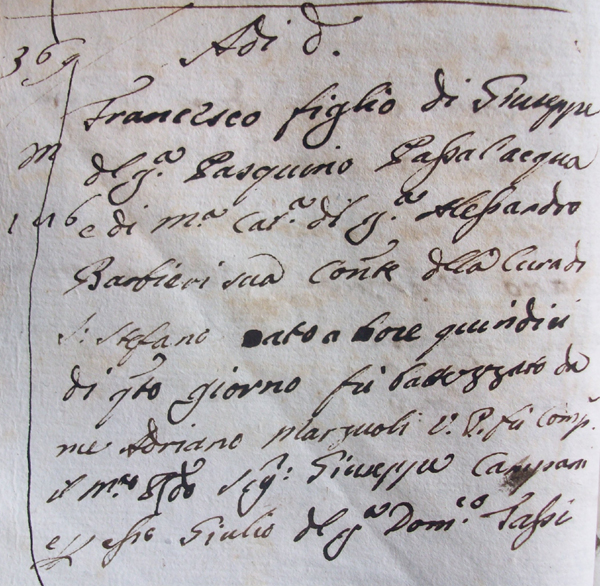 369 Adi d.
Francesco figlio di Giuseppe
m del q.m Pasquino Passalacqua
e di M.a Cat.a del q.m Alessandro
Barbieri sua Con.te della Cura di
S. Stefano nato a hore quindici
di q.to giorno fu battezzato da
me Adriano Marzuoli V. P. fu Comp.
il S.r Giuseppe Campani
Giulio del q.m Dom.co Tassi